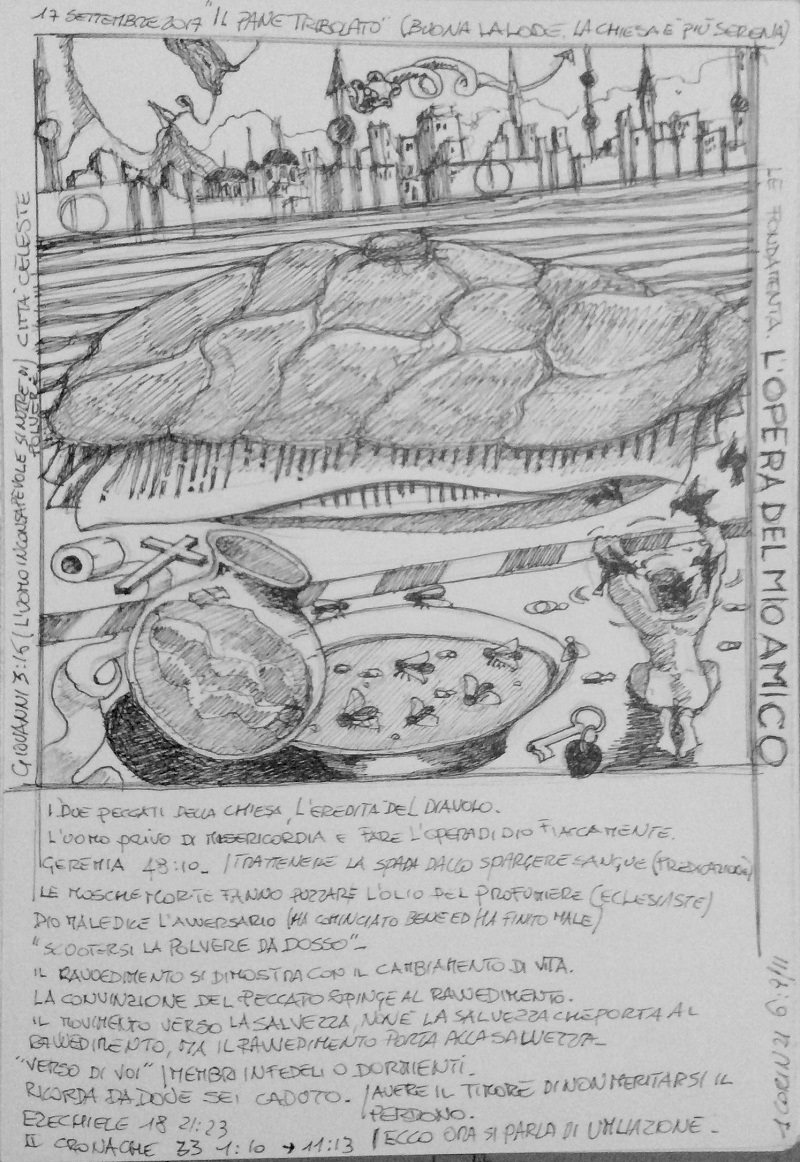 17 SETTEMBRE 2017 "IL PANE TRIBOLATO" (BUONA LA LODE, LA CHIESA È PIÙ SERENA)
GIOVANNI 3:16 / L'UOMO INCONSAPEVOLE SI NUTRE DI / CITTÀ CELESTE
POLVERE.
LE FONDAMENTA. L'OPERA DEL MIO AMICO
I DUE PECCATI DELLA CHIESA, L'EREDITÀ DEL DIAVOLO.
L'UOMO PRIVO DI MISERICORDIA E FARE L'OPERA DI DIO FIACCAMENTE.
GEREMIA 48:10_ / TRATTENERE LA SPADA DALLO SPARGERE SANGUE (PREDICAZIONE)
LE MOSCHE MORTE FANNO PUZZARE L'OLIO DEL PROFUMIERE (ECCLESIASTE)
DIO MALEDICE L'AVVERSARIO (HA COMINCIATO BENE ED HA FINITO MALE)
"SCUOTERSI LA POLVERE DA DOSSO"_
IL RAVVEDIMENTO SI DIMOSTRA CON IL CAMBIAMENTO DI VITA.
LA CONVINZIONE DEL PECCATO SPINGE AL RAVVEDIMENTO.
IL MOVIMENTO VERSO LA SALVEZZA, NON È LA SALVEZZA CHE PORTA AL
RAVVEDIMENTO, MA IL RAVVEDIMENTO PORTA ALLA SALVEZZA_
"VERSO DI VOI" / MEMBRI INFEDELI O DORMIENTI_
RICORDA DA DOVE SEI CADUTO. / AVERE IL TIMORE DI NON MERITARSI IL
PERDONO.
EZECHIELE 18 21:23
II CRONACHE 33 1:10 → 11:13 / ECCO ORA SI PARLA DI UMILIAZIONE_